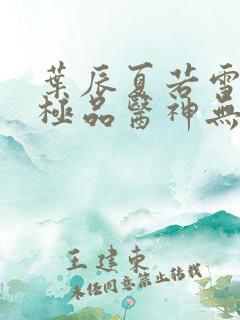 葉辰夏若雪
極品醫神無
王建東
未經同意禁止轉載